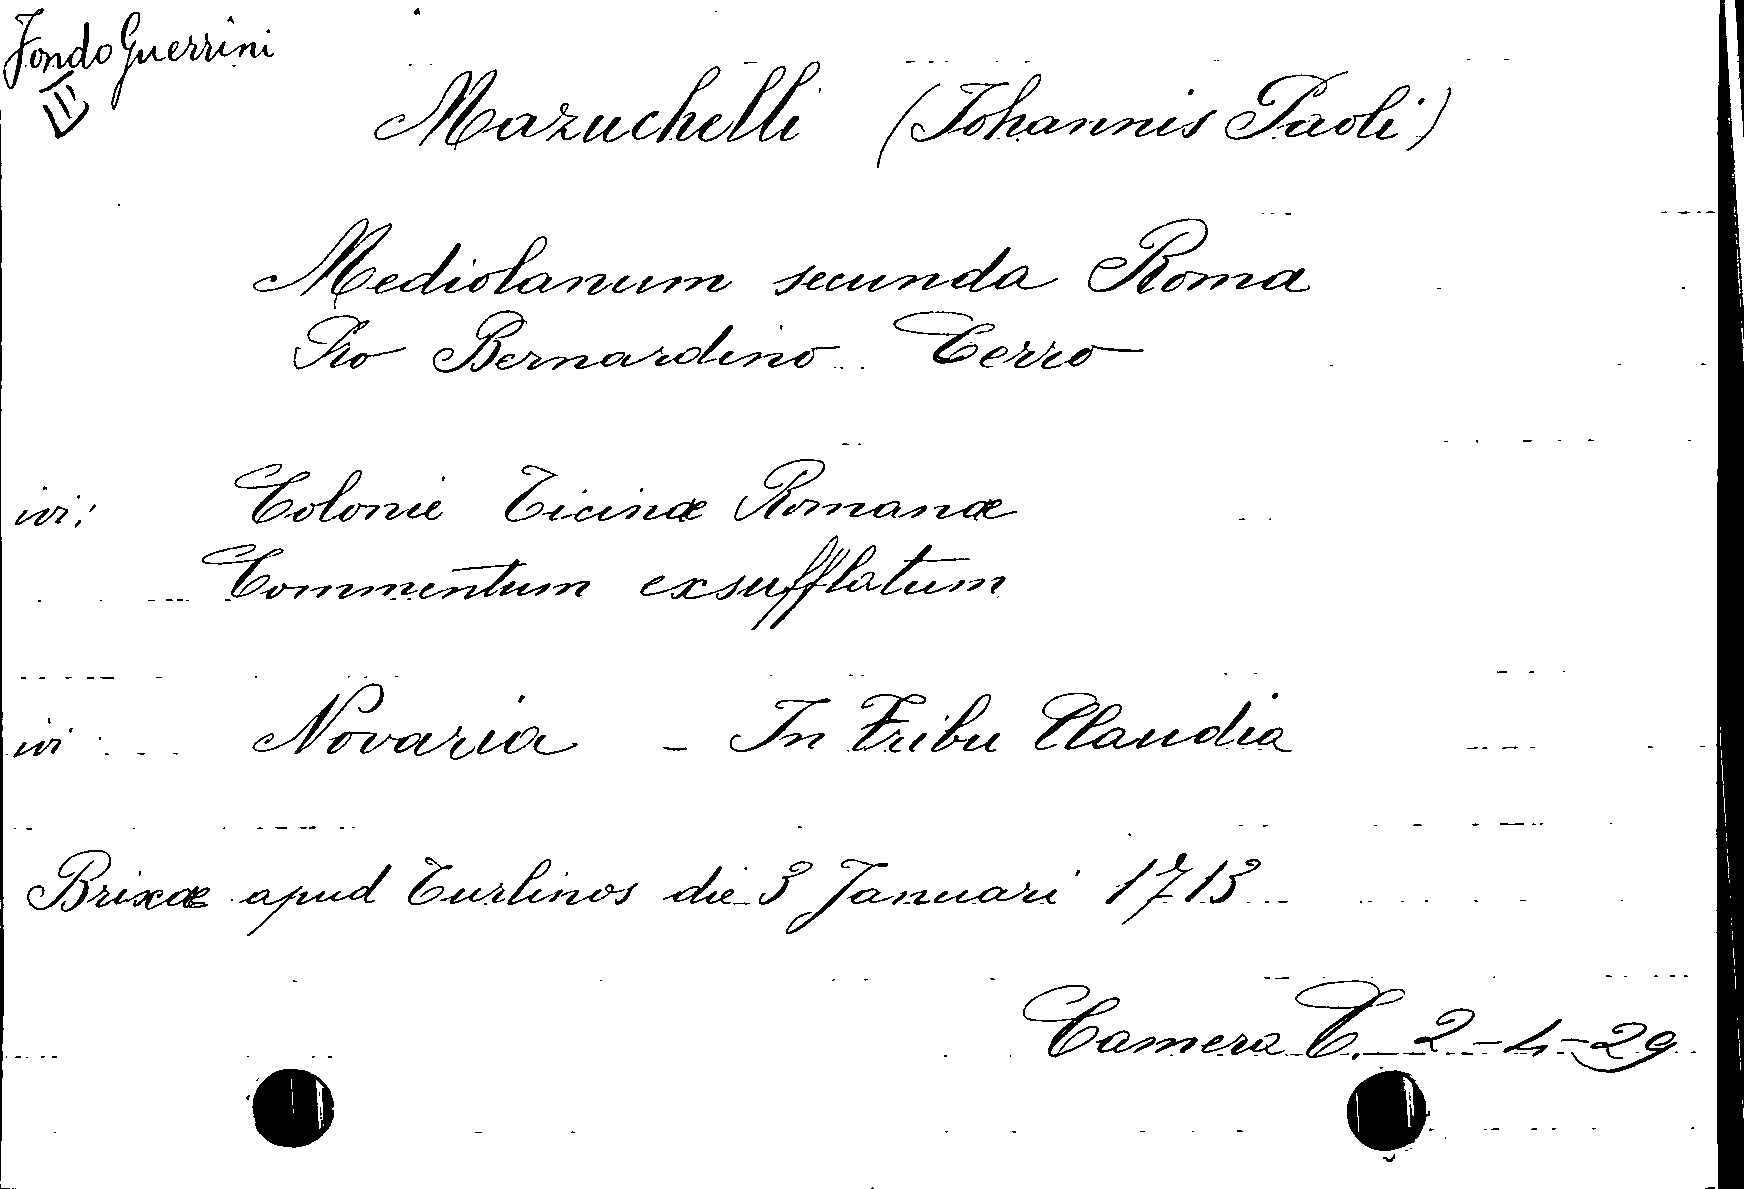 Fondo Guerrini
III
Mazuchelli (Johannis Paoli)
Mediolanum secunda Roma
Pro Bernardino Cerro
ivi: Colonie Ticinæ Romanæ
Commentum exsufflatum
ivi Novaria - In Tribu Claudia
Brixæ apud Turlinos die 3 Januari 1713
Camera C. 2-4-29